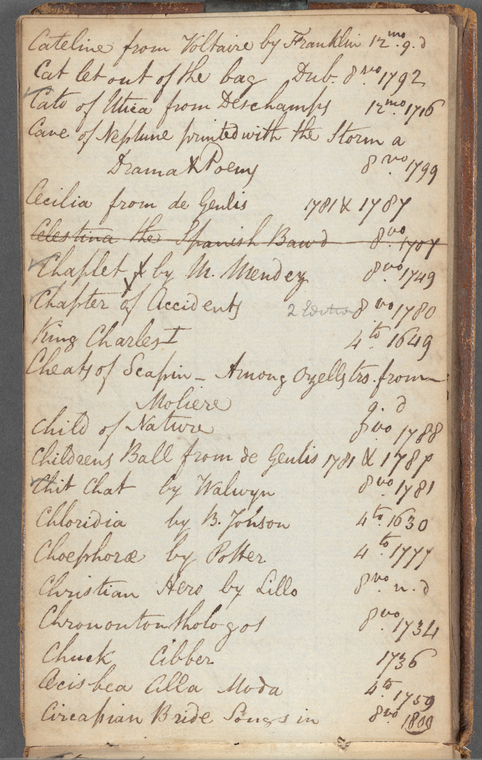 Cateline from Voltaire by Franklin 12mo. g. d
Cat let out of the bag Dub. 8vo 1792
Cato of Utica from Deschamps 12mo 1716
Cave of Neptune printed with the Storm a
Drama & Poems 8vo 1799
Cecilia from de Genlis 1781 & 1787
Celestina the Spanish Bawd 8vo 1707
Chaplet X by M. Mendez 8vo 1749
Chapter of Accidents 2 Edition 8vo 1780
King Charles I 4to 1649
Cheats of Scapin - Among Ozells trs. from
Moliere g. d
Child of Nature 8vo 1788
Childrens Ball from de Genlis 1781 & 1787
Chit Chat by Walwyn 8vo 1781
Chloridia by B. Johson 4to 1630
Choephoræ by Potter 4to 1777
Christian Hero by Lillo 8vo n. d
Chrononton thologos 8vo 1734
Chuck Cibber 1736
Cicisbea Alla Moda 4to 1759
Circassian Bride Songs in 8vo 1809